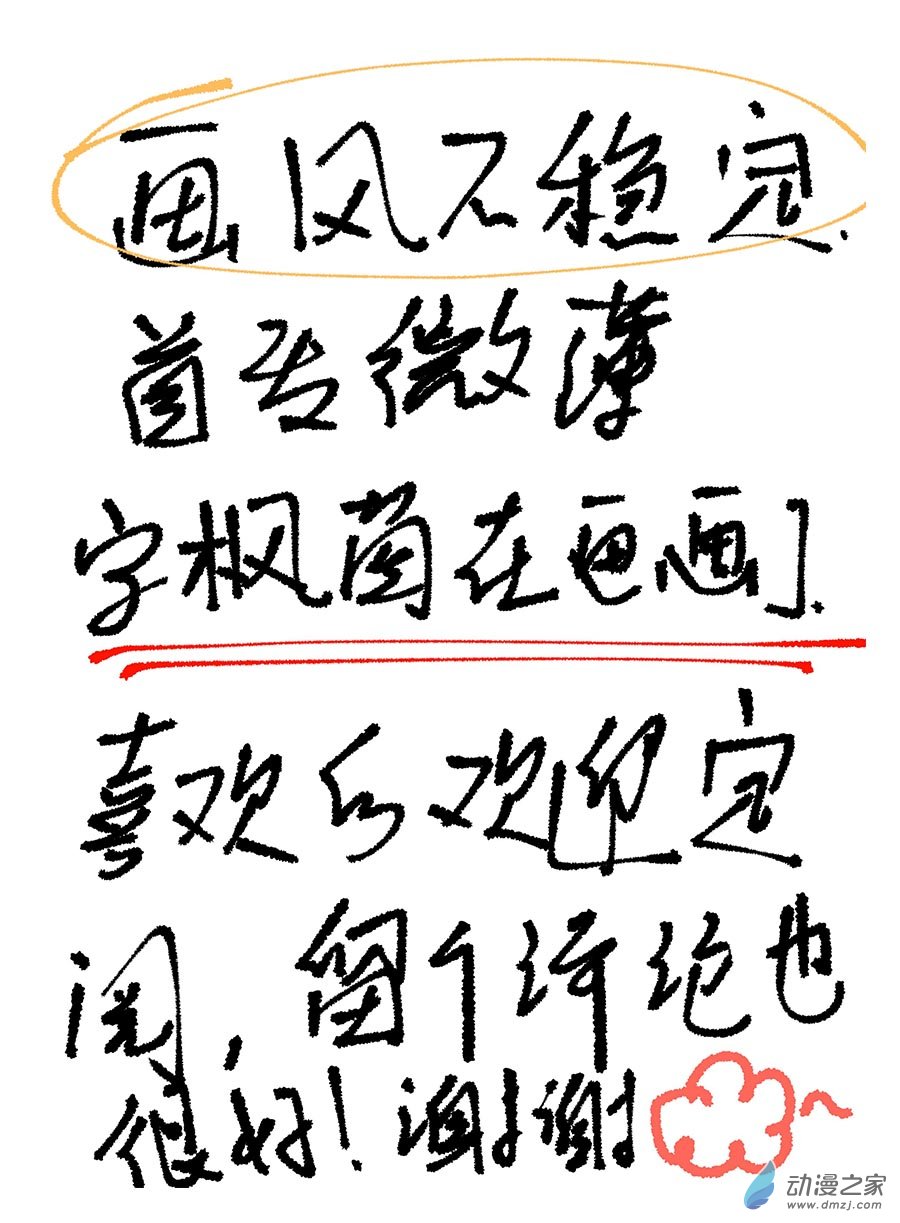 画风不稳定.
首发微薄
字枫菌在画画].
喜欢的欢迎定
阅，留个评论也
很好！谢谢
动漫之家
www.dmzj.com